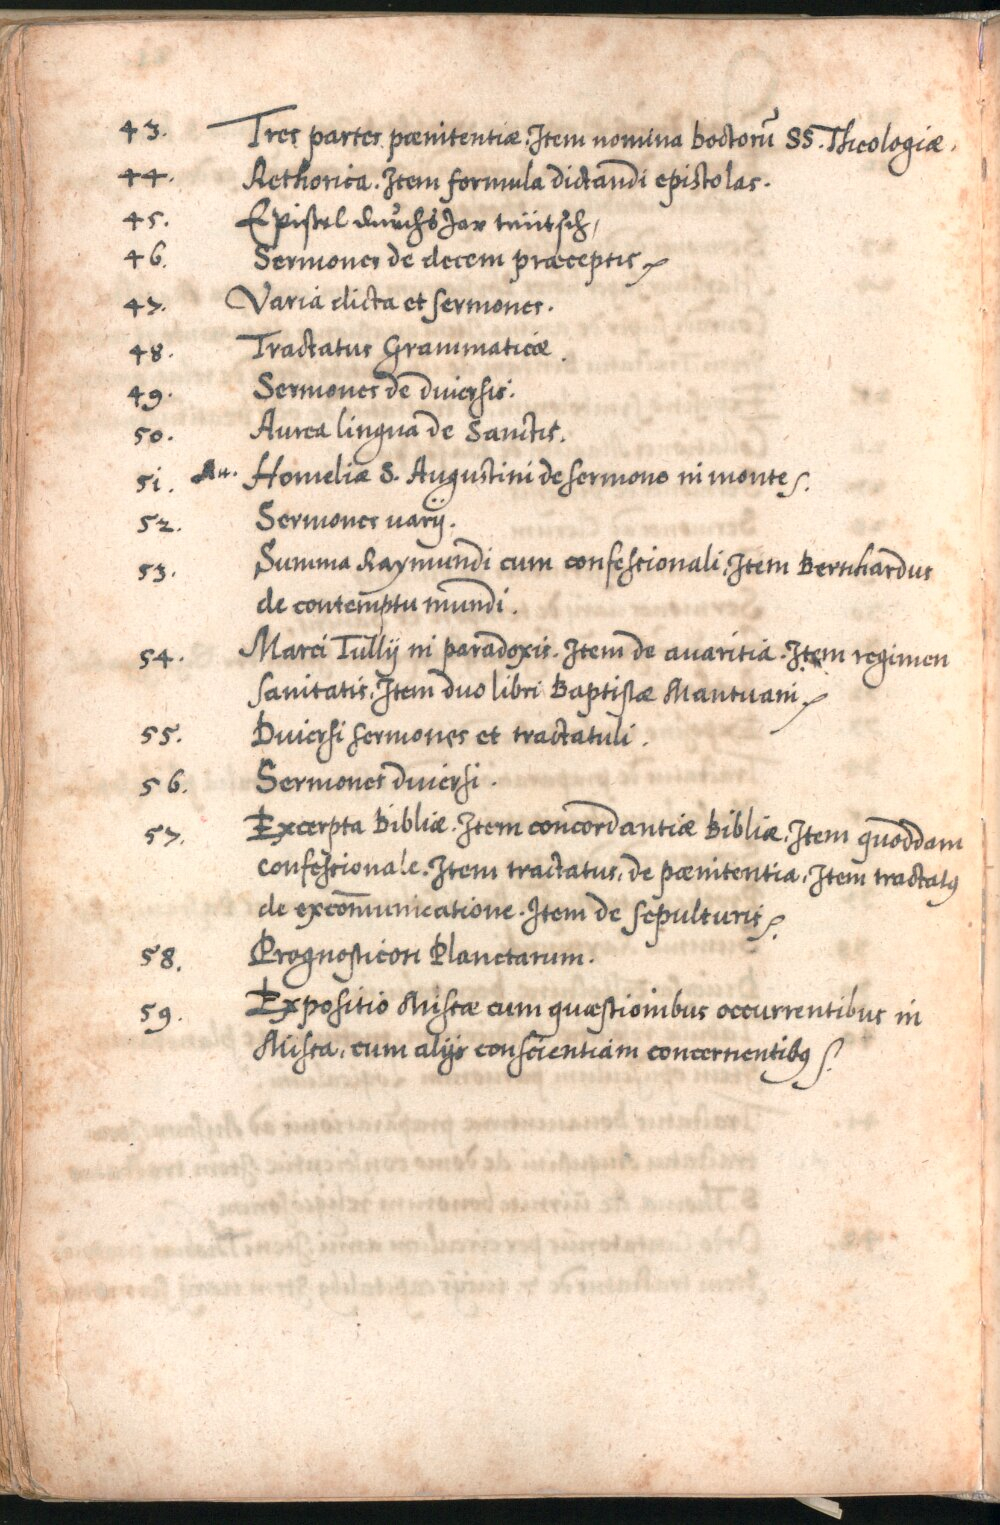 43. Tres partes pænitentiæ. Item nomina doctorū SS. Theologiæ.
44. Rethorica. Item formula dictandi epistolas.
45. Epistel durchs Jar teütsch,
46. Sermones de decem præceptis
47. Varia dicta et sermones.
48. Tractatus Grammaticæ.
49. Sermones de diuersis.
50. Aurea lingua de Sanctis.
51. Homeliæ S. Augustini de sermone in monte.
52. Sermones varij.
53. Summa Raymundi cum confessionali. Item Bernhardus
de contemptu mundi.
54. Marci Tullij in paradoxis. Item de auaritia. Item regimen
sanitatis. Item duo libri Baptistæ Mantuani.
55. Diuersi sermones et tractatuli.
56. Sermones diuersi.
57. Excerpta Bibliæ. Item concordantiæ Bibliæ. Item quoddam
confessionale. Item tractatus, de pænitentia. Item tractatus
de excōmunicatione. Item de sepulturis.
58. Prognosticon Planetarum.
59. Expositio Missæ cum quæstionibus occurrentibus in
Missa, cum alijs conscientiam concernentibus.